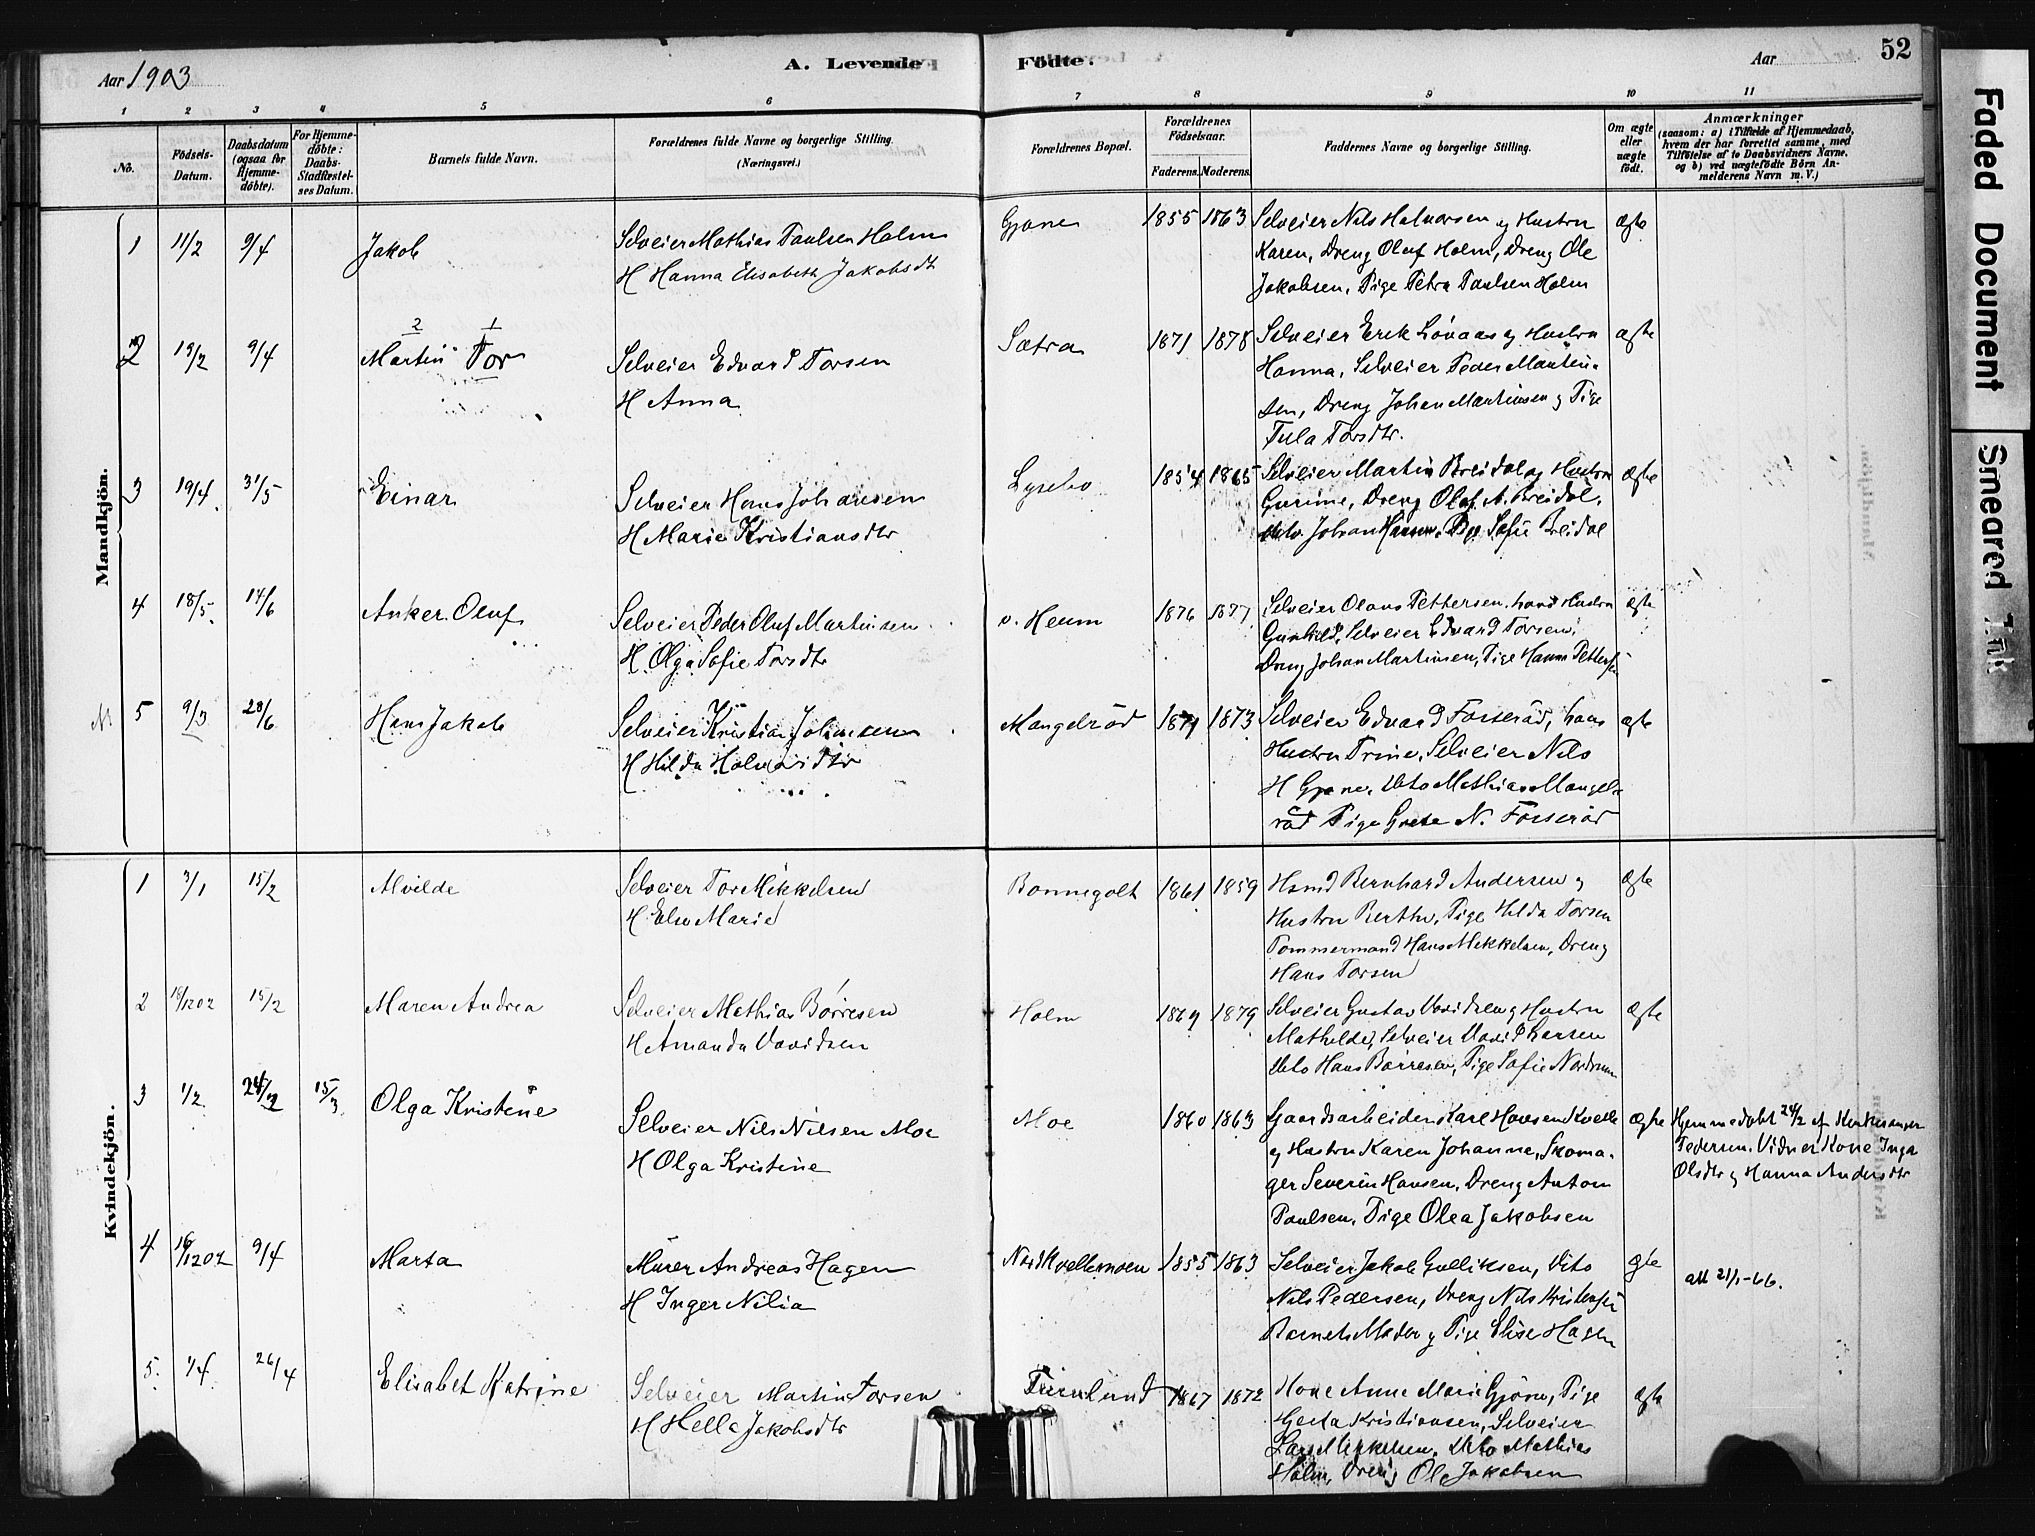 Aar 1903
A. Levende
Födte.
Aar
52
1 2 3 4 5 6 7 8 9 10 11
No.
Födsels-Datum.
Daabsdatum (ogsaa for Hjemme-döbte).
For Hjemme-döbte: Daabs-Stadfæstel-ses Datum.
Barnets fulde Navn.
Forældrenes fulde Navne og borgerlige Stilling. (Næringsvei.)
Forældrenes Bopæl.
Forældrenes Födselsaar.
Faderens. Moderens.
Faddernes Navne og borgerlige Stilling.
Om ægte eller uægte födt.
Anmærkninger
(saasom: a) i Tilfælde af Hjemmedaab, hvem der har forrettet samme, med Tilföielse af to Daabsvidners Navne, og b) ved uægtefödte Börn An-melderens Navn m. V.)
Mandkjön.
1 11/2 9/4 Jakob
Selveier Mathias Paulsen Holm
H Hanna Elisabeth Jakobsdt
Gjone 1855 1863
Selveier Nils Halvorsen og Hustru
Karen, Dreng Oluf Holm, Dreng Ole
Jakobsen, Pige Petra Paulsen Holm
ægte
2 19/2 9/4
2 1
Martin Tor
Selveier Edvard Torsen
H Anna
Sætra 1871 1878
Selveier Erik Løvaas og Hustru
Hanna, Selveier Peder Martin-
sen, Dreng Johan Martinsen og Pige
Tula Torsdtr.
ægte
3 19/4 31/5 Einar
Selveier Hans Johansen
H Marie Kristiansdtr
Lysebo 1854 1865
Selveier Martin Breidal og Hustru
Gurine, Dreng Olaf A. Breidal,
dito Johan Hansen, Pige Sofie Breidal
ægte
4 18/5 14/6 Anker Oluf
Selveier Peder Oluf Martinsen
H. Olga Sofie Torsdtr
v. Heum 1876 1877
Selveier Olaus Pettersen, hans Hustru
Gunhild, Selveier Edvard Torsen,
Dreng Johan Martinsen, Pige Hanna Pettersen
ægte
M 5 9/3 28/6 Hans Jakob
Selveier Kristian Johansen
H Hilda Halvorsdtr
Mangelrød 1871 1873
Selveier Edvard Forserød, hans
Hustru Trine, Selveier Nils
H Gjone, dito Mathias Mangel-
rød Pige Grete N. Forserød
ægte
Kvindekjön.
1 3/1 15/2 Alvilde
Selveier Tor Mikkelsen
H. Else Marie
Bonnegolt 1861 1859
Hsmd Bernhard Andersen og
Hustru Berthe, Pige Hilda Torsen
Tømmermand Hans Mikkelsen, Dreng
Hans Torsen
ægte
2 18/12 02 15/2 Maren Andrea
Selveier Mathias Børresen
H Amanda Davidsen
Holm 1869 1879
Selveier Gustav Davidsen og Hustru
Mathilde, Selveier David Larsen
dito Hans Børresen, Pige Sofie Nordrum
ægte
3 1/2 24/2 15/3 Olga Kristine
Selveier Nils Nilsen Moe
H Olga Kristine
Moe 1860 1863
Gaardsarbeider Karl Hansen Kvelle
og Hustru Karen Johanne, Skoma-
ger Severin Hansen, Dreng Anton
Paulsen, Pige Olea Jakobsen
ægte
Hjemmedøbt 24/2 af Kirkesanger
Pedersen. Vidner Kone Inga
Olsdtr og Hanna Andersdtr
4 16/12 02 9/4 Marta
Murer Andreas Hagen
H Inger Nilia
Nordkvellemoen 1855 1863
Selveier Jakob Gulliksen, Dito
Nils Pedersen, Dreng Nils Kristensen
Barnets Moder og Pige Elise Hagen
ægte
att 21/1-66.
5. 1/4 26/4 Elisabet Katrine
Selveier Martin Torsen
H Helle Jakobsdtr
1867 1872
Kone Anne Marie Gjøne, Pige
Gerta Kristiansen, Selveier
Lars Mikkelsen, Dito Mathias
Holm, Dreng Ole Jakobsen
ægte
Faded Document
Smeared Ink